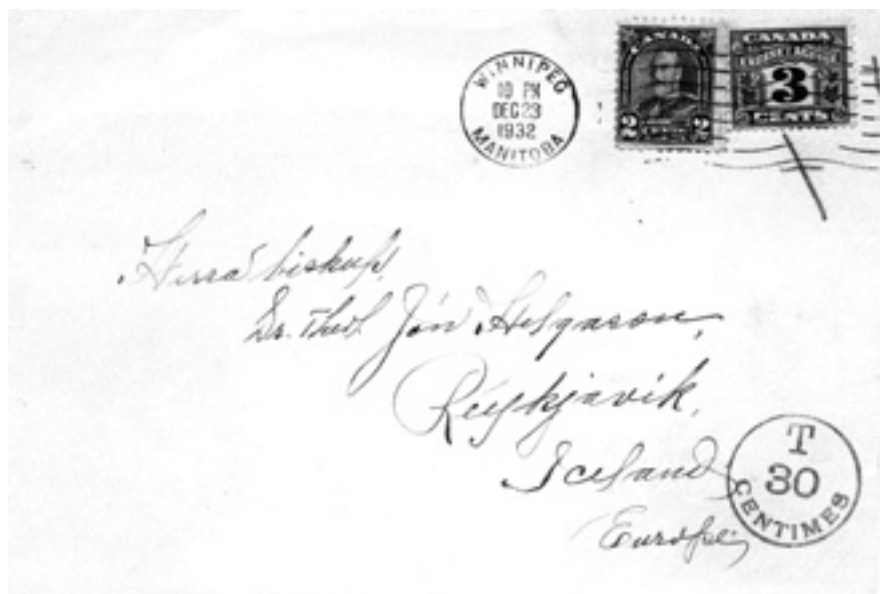 WINNIPEG
10 PM
DEC 23
1932
MANITOBA
CANADA
2 2
CANADA
3
CENTS
Herra biskup,
Dr. Theol. Jón Helgason,
Reykjavik,
Iceland
Europe
T
30
CENTIMES